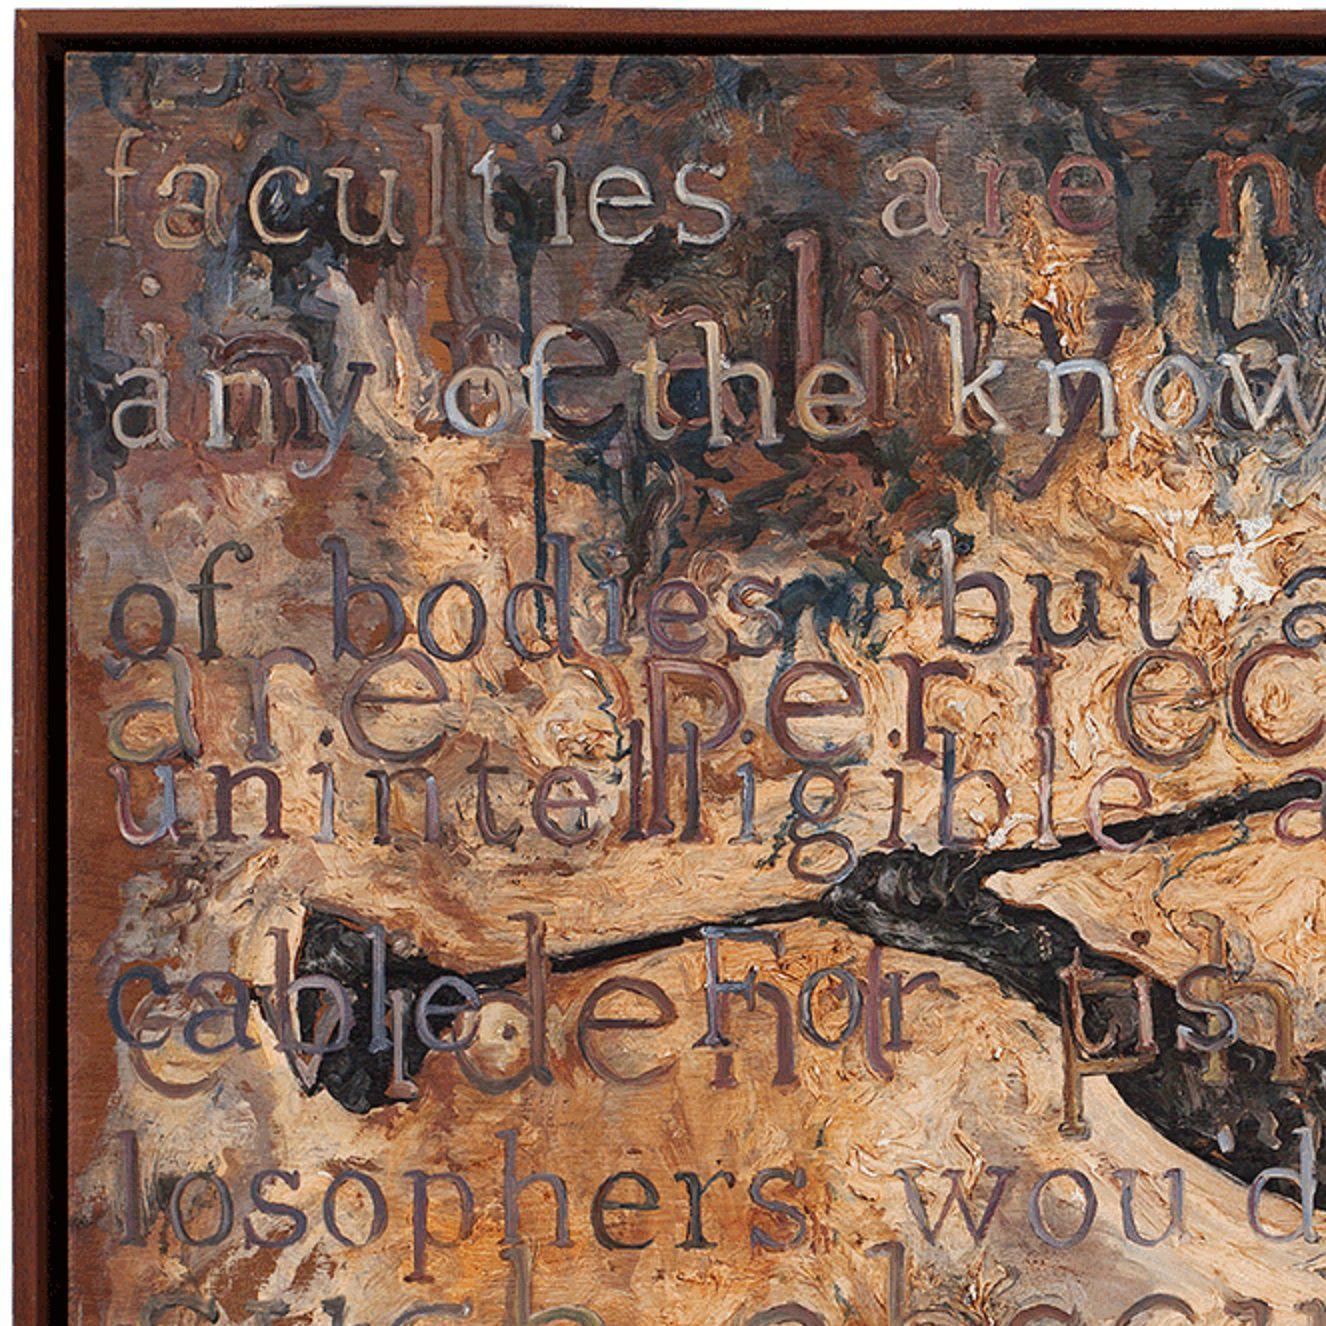 faculties are
reality
any of the know
of bodies but
are perfec
unintelligible a
cable For
evident
losophers woud
such obscu